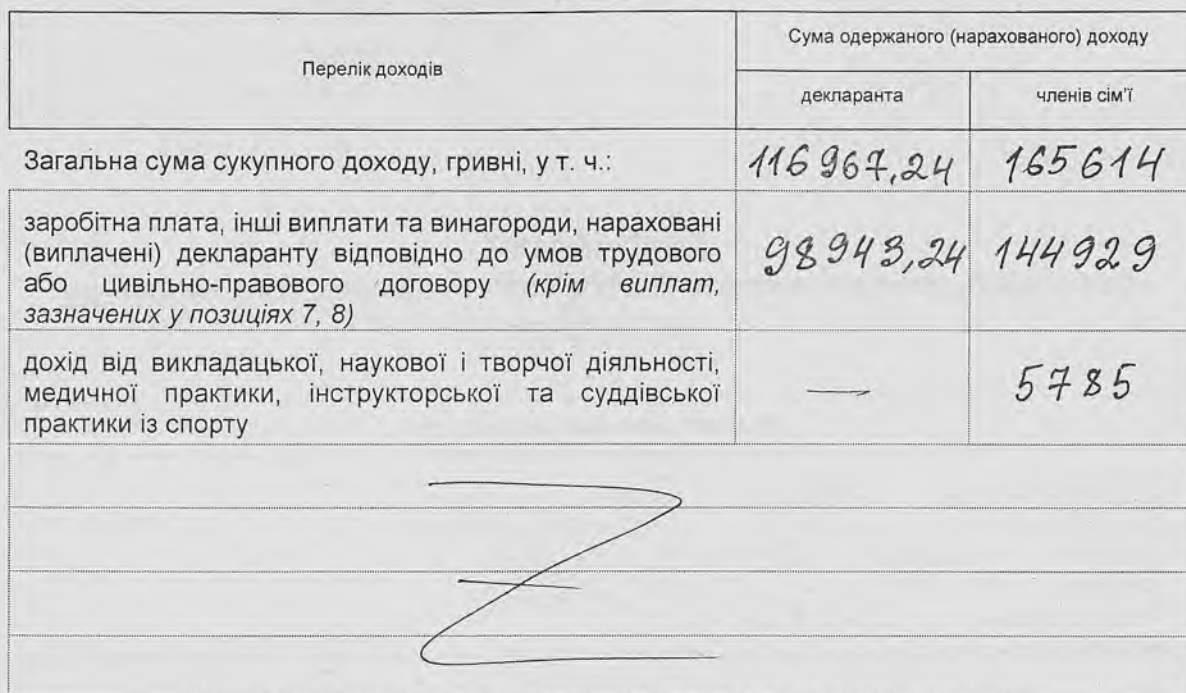 Перелік доходів
Сума одержаного (нарахованого) доходу
декларанта
членів сім'ї
Загальна сума сукупного доходу, гривні, у т. ч.:
116 967,24
165614
заробітна плата, інші виплати та винагороди, нараховані
(виплачені) декларанту відповідно до умов трудового
або цивільно-правового договору (крім виплат,
зазначених у позиціях 7, 8)
98943,24
144929
дохід від викладацької, наукової і творчої діяльності,
медичної практики, інструкторської та суддівської
практики із спорту
—
5785